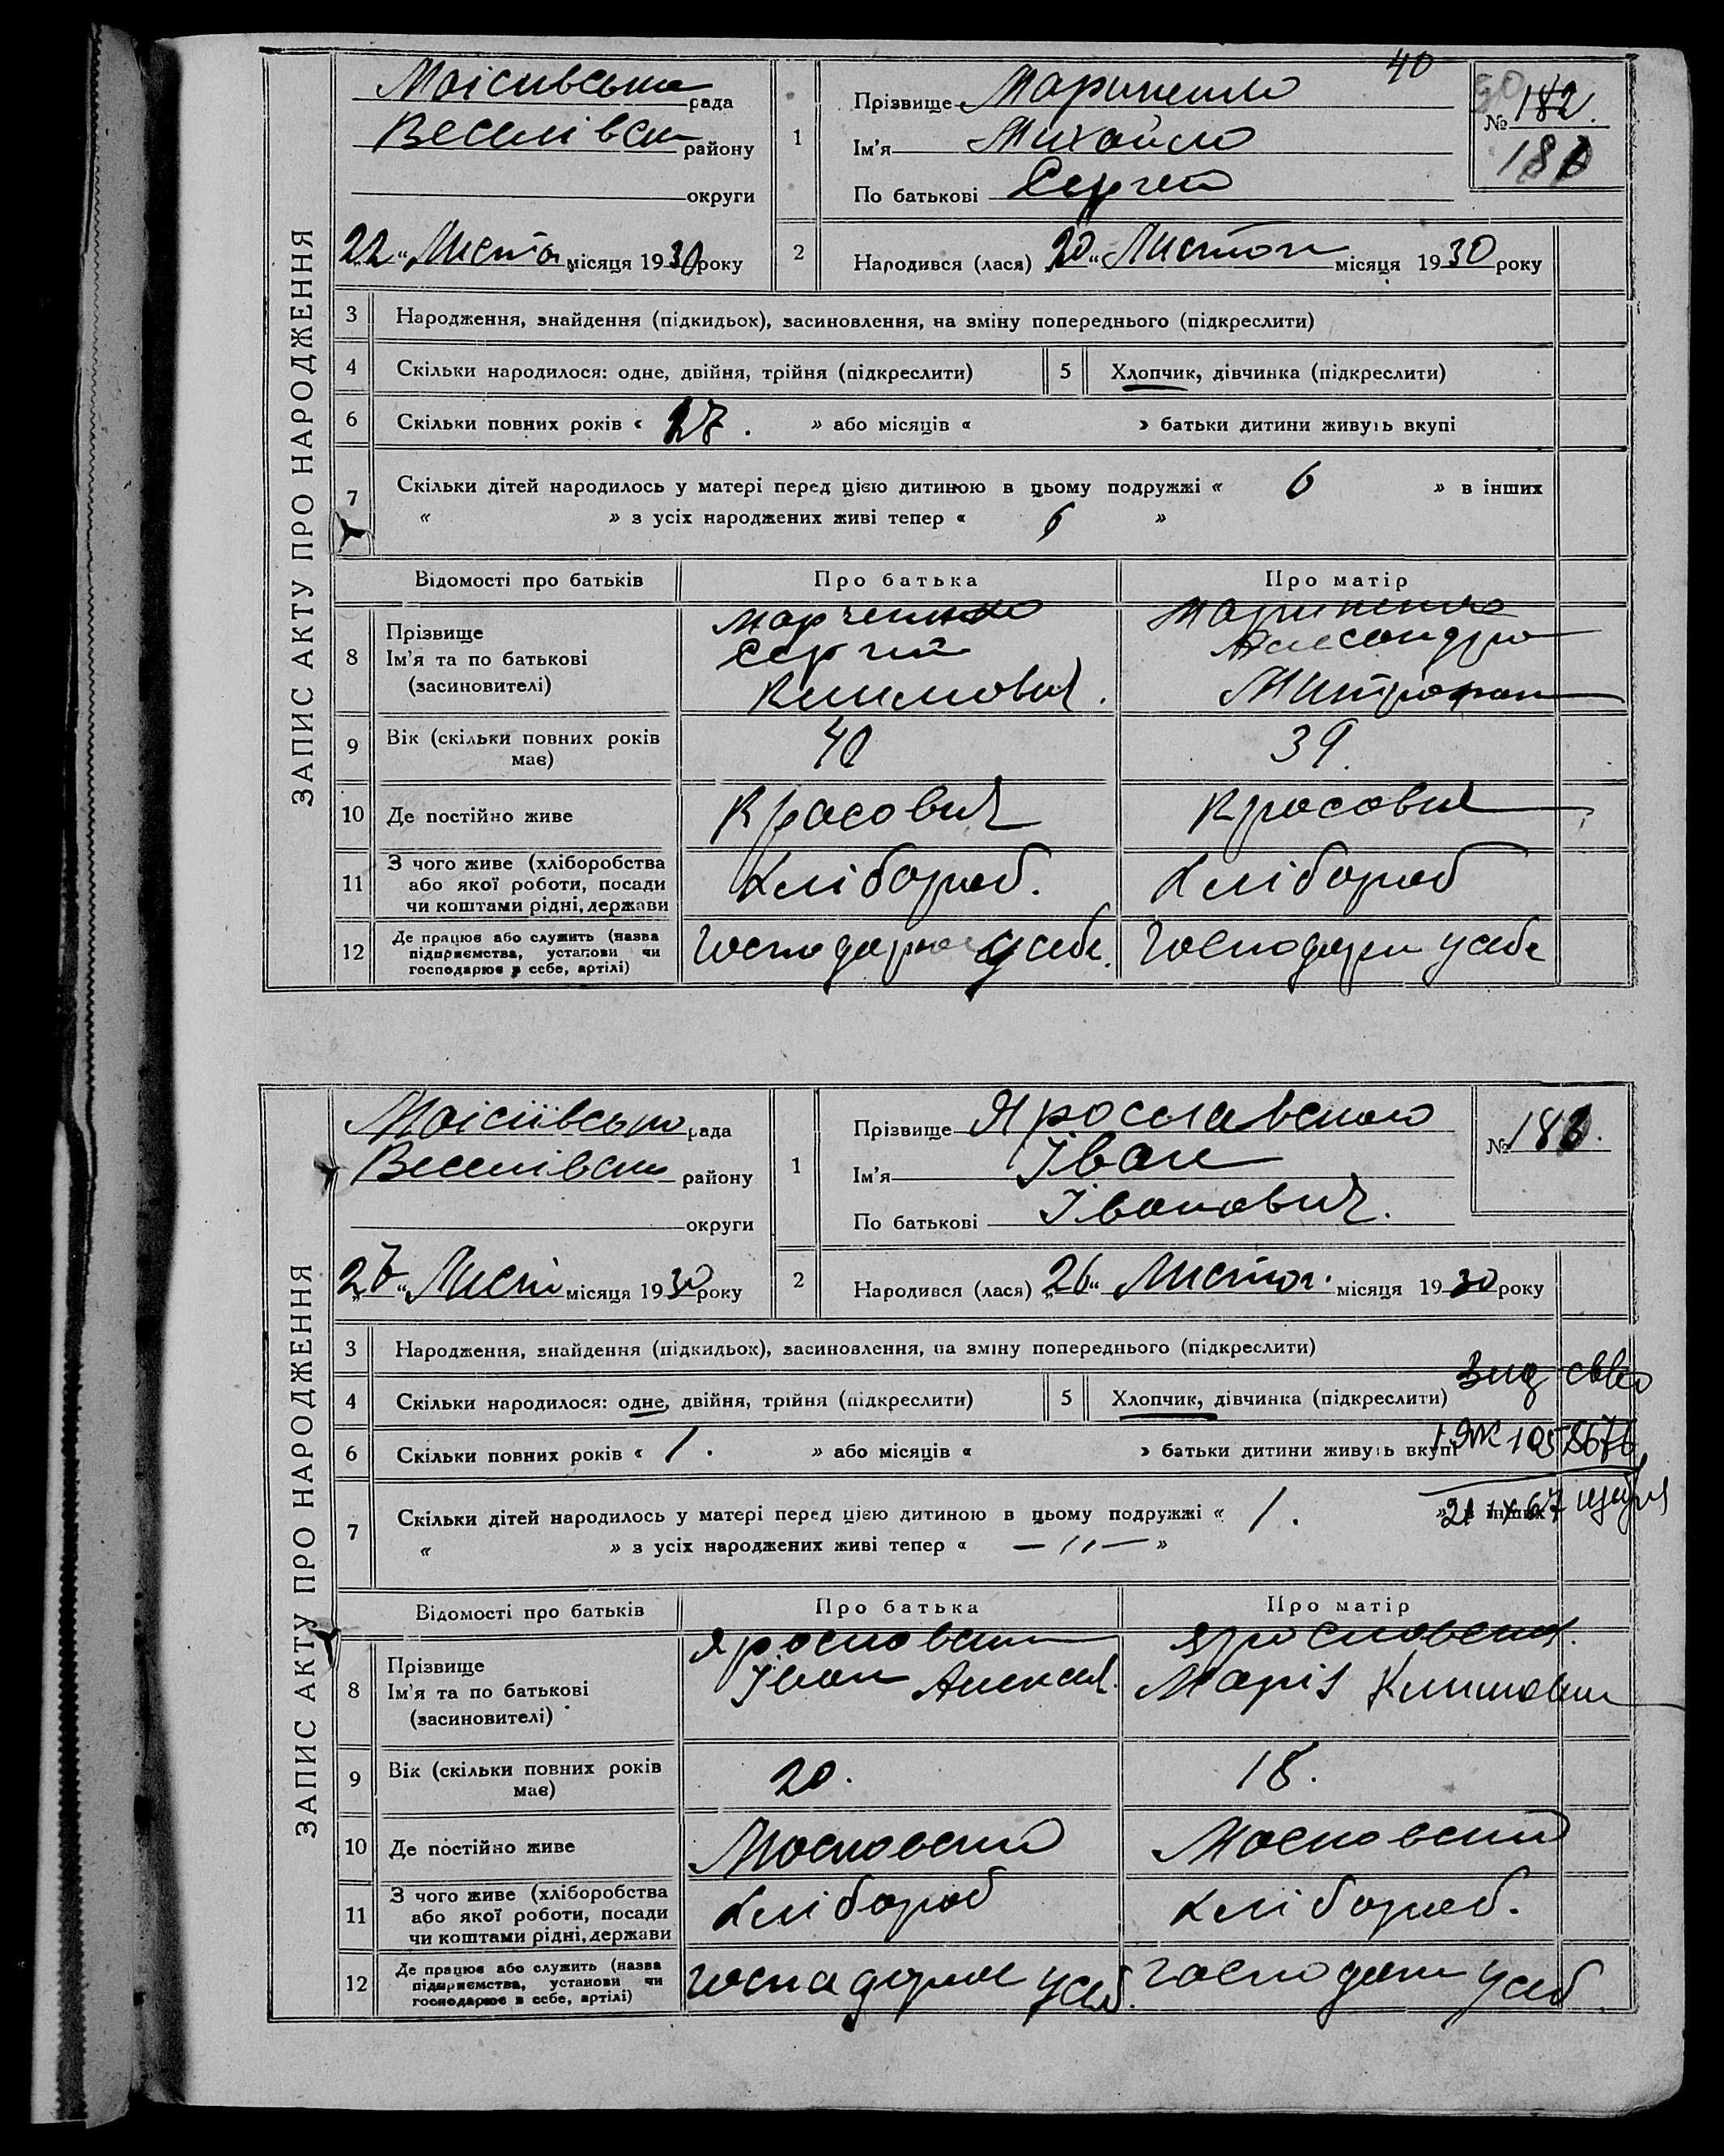 ЗАПИС АКТУ ПРО НАРОДЖЕННЯ
40
Моісиівська рада
Веселівськ району
округи
22 " Листо місяця 1930 року
1
Прізвище Мариненко
Ім'я Михайло
По батькові Сергей
№ 182.
2
Народився (лася) 20 " Листоп місяця 1930 року
3 Народження, знайдення (підкидьок), засиновлення, на зміну попереднього (підкреслити)
4 Скільки народилося: одне, двійня, трійня (підкреслити) 5 Хлопчик, дівчинка (підкреслити)
6 Скільки повних років « 27. » або місяців « » батьки дитини живуть вкупі
7 Скільки дітей народилось у матері перед цією дитиною в цьому подружжі « 6 » в інших
« » з усіх народжених живі тепер « 6 »
Відомості про батьків Про батька Про матір
8 Прізвище
Ім'я та по батькові
(засиновителі)
Марченко
Сергий
Климович.
Мариненко
Александра
Митрофан
9 Вік (скільки повних років має) 40 39.
10 Де постійно живе Красович Красович
11 З чого живе (хліборобства
або якої роботи, посади
чи коштами рідні, держави
Хлібороб. Хлібороб
12 Де працює або служить (назва
підприємства, установи чи
господарює в себе, артілі)
Господарює у себе. Господари у себе
ЗАПИС АКТУ ПРО НАРОДЖЕННЯ
Моісиївсько рада
Веселівськ району
округи
27 " Лист місяця 1930 року
1
Прізвище Ярославського
Ім'я Іван
По батькові Іванович.
№
2
Народився (лася) 26 " Листоп. місяця 1930 року
3 Народження, знайдення (підкидьок), засиновлення, на зміну попереднього (підкреслити)
4 Скільки народилося: одне, двійня, трійня (підкреслити) 5 Хлопчик, дівчинка (підкреслити)
6 Скільки повних років « 1. » або місяців « » батьки дитини живуть вкупі
7 Скільки дітей народилось у матері перед цією дитиною в цьому подружжі « 1. » в інших
« » з усіх народжених живі тепер « —〃— »
Відомості про батьків Про батька Про матір
8 Прізвище
Ім'я та по батькові
(засиновителі)
Ярославськ
Іван Алексі.
Ярославська.
Марія Климович
9 Вік (скільки повних років має) 20. 18.
10 Де постійно живе Московский Московский
11 З чого живе (хліборобства
або якої роботи, посади
чи коштами рідні, держави
Хлібороб Хлібороб.
12 Де працює або служить (назва
підприємства, установи чи
господарює в себе, артілі)
Господарює у себ. Господари у себ